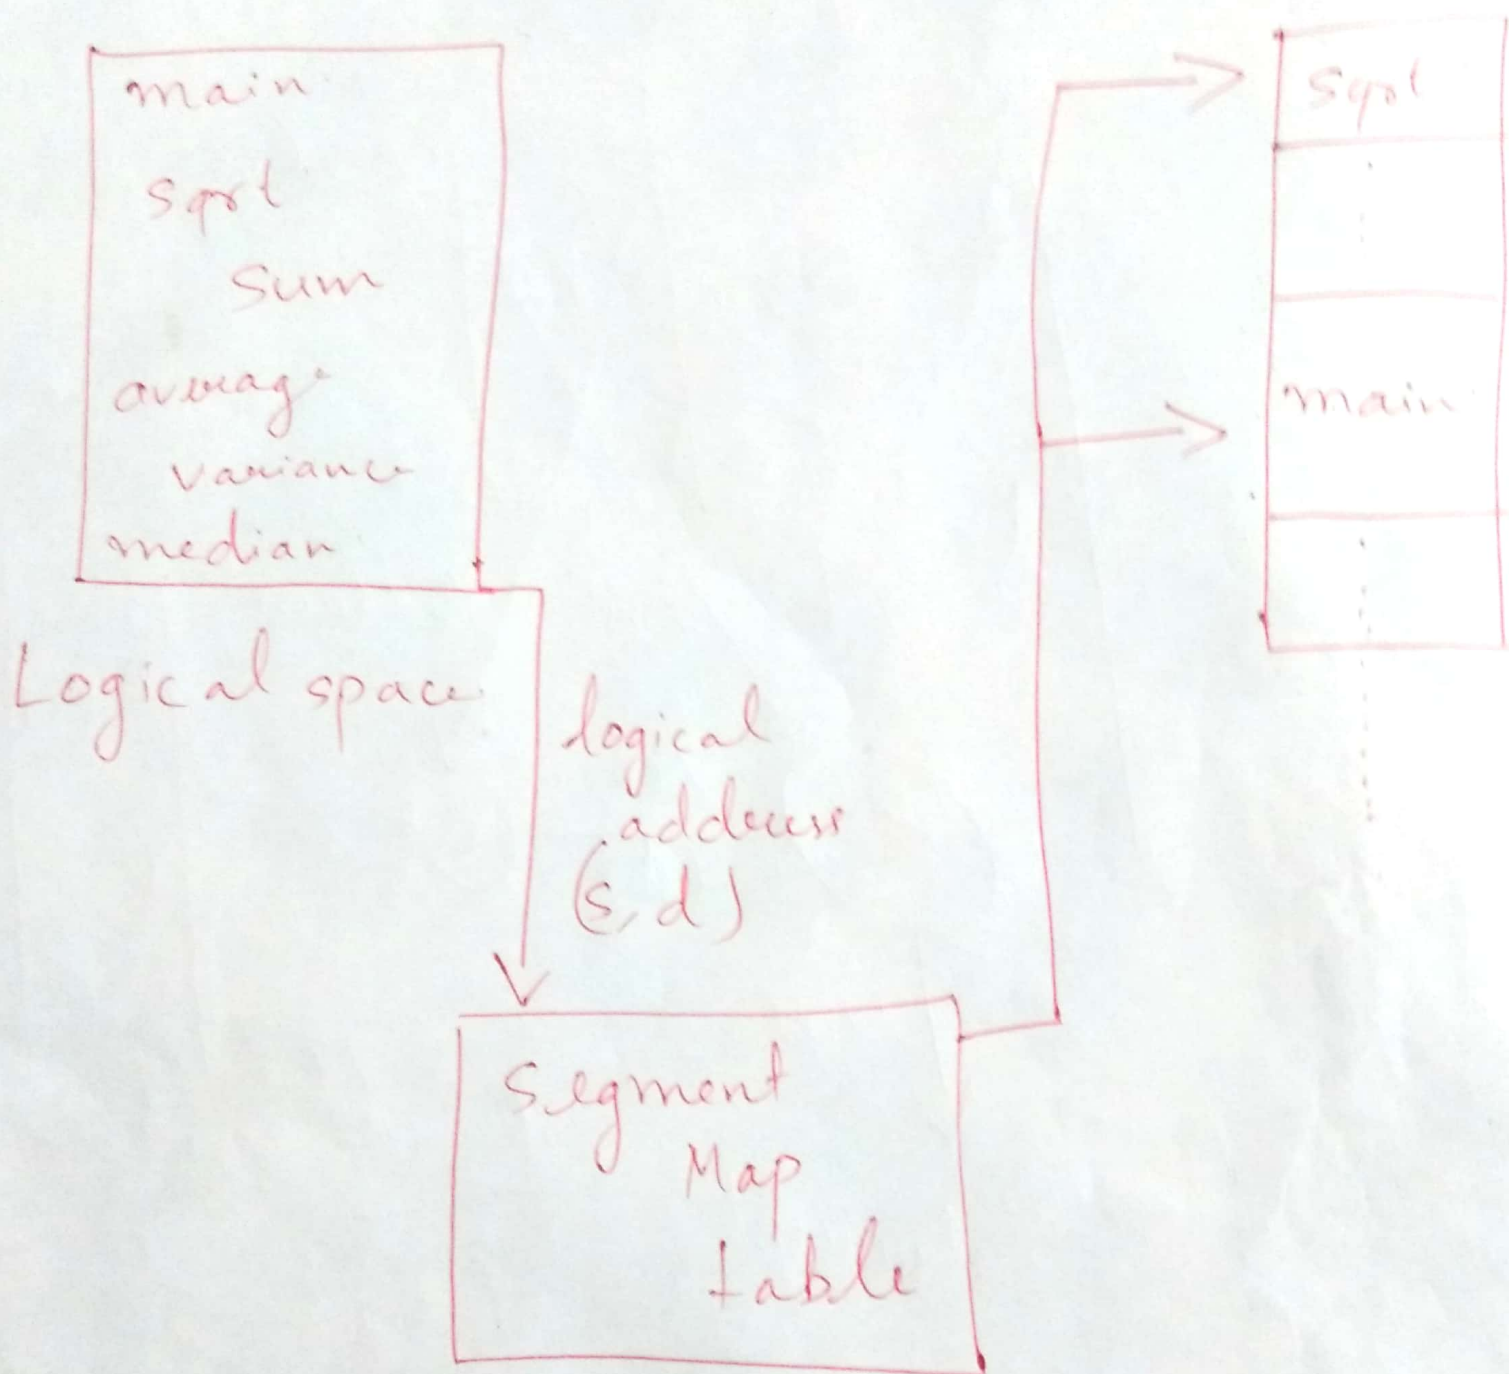 main
sqrt
sum
average
variance
median
Logical space
logical
address
(s, d)
Segment
Map
table
sqrt
main